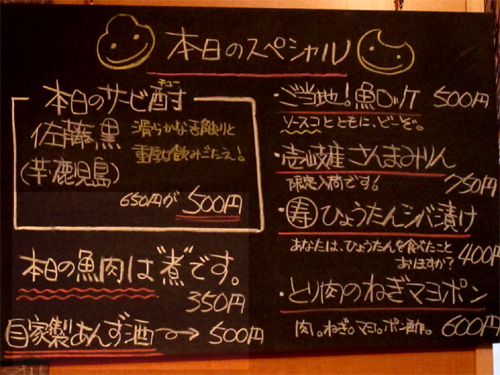 本日のスペシャル
本日のサービ酎
チュー
佐藤黒
(芋・鹿児島)
滑らかな舌触りと
重厚な飲みごたえ!
650円が 500円
本日の魚肉は"煮"です。
350円
自家製あんず酒→500円
・ご当地!魚ロッケ 500円
ソースコとともに、ビーどぞ。
・壱岐産さんまみりん
限定入荷です。 750円
・寿ひょうたんシバ漬け
あなたは、ひょうたんを食べたこと
おますか? 400円
・とり肉のねぎマヨポン
肉。ねぎ。マヨ。ポン酢。 600円